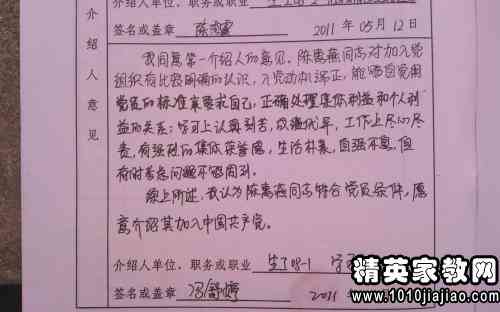 介绍人单位、职务或职业
签名或盖章 2011年05月12日
介绍人意见
我同意第一介绍人的意见。陈惠燕同志对加入党
组织有比较明确的认识，入党动机端正，能够自觉用
党员的标准来要求自己，正确处理集体利益和个人利
益的关系；学习上认真刻苦，成绩优异，工作上尽心尽
责，有强烈的集体荣誉感，生活朴素，自强不息，但
有时考虑问题不够周到。
综上所述，我认为陈惠燕同志符合党员条件，愿
意介绍其加入中国共产党。
介绍人单位、职务或职业 生工08-1
签名或盖章 冯舒婷 2011
精英家教网
www.1010jiajiao.com